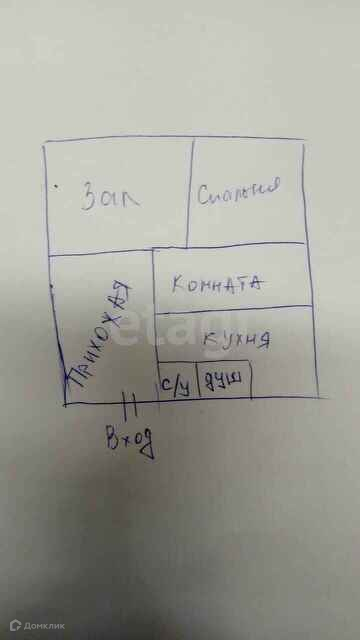 Зал
Спальня
Комната
Прихожая
etagi
Кухня
с/у
душ
Вход
Домклик